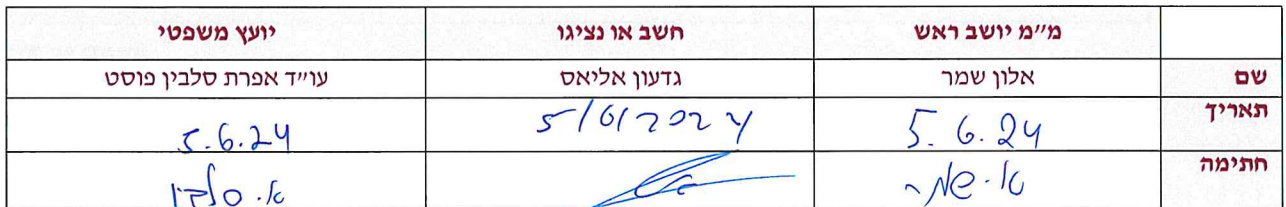 מ״מ יושב ראש חשב או נציגו יועץ משפטי
שם אלון שמר גדעון אליאס עו״ד אפרת סלבין פוסט
תאריך 5.6.24 5/6/2024 5.6.24
חתימה א. שמר א. סלבין